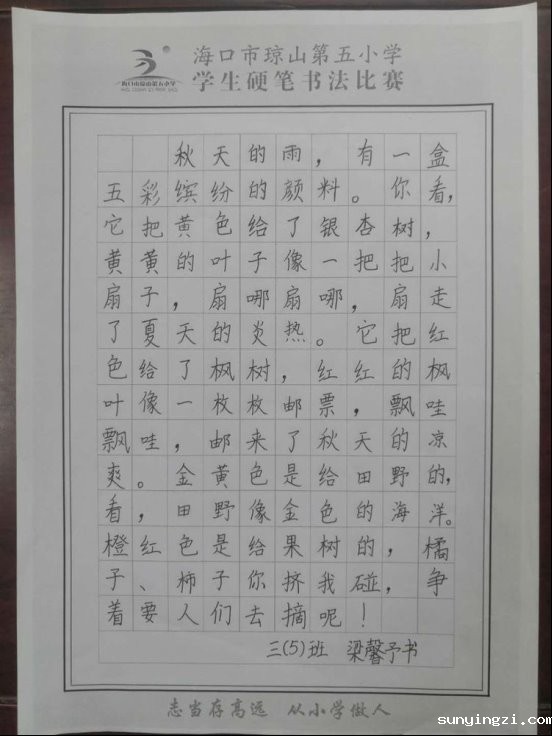 海口市琼山第五小学
学生硬笔书法比赛
海口市琼山第五小学
秋天的雨，有一盒
五彩缤纷的颜料。你看，
它把黄色给了银杏树，
黄黄的叶子像一把把小
扇子，扇哪扇哪，扇走
了夏天的炎热。它把红
色给了枫树，红红的枫
叶像一枚枚邮票，飘哇
飘哇，邮来了秋天的凉
爽。金黄色是给田野的，
看，田野像金色的海洋。
橙红色是给果树的，橘
子、柿子你挤我碰，争
着要人们去摘呢！
三(5)班 梁馨予书
志当存高远 从小学做人
sunyingzi.com